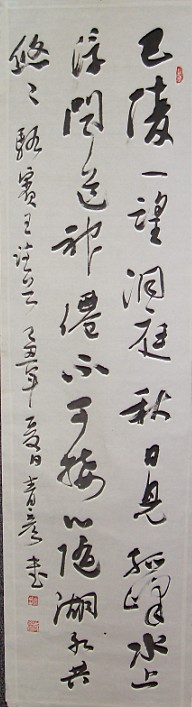 巴陵一望洞庭秋日見孤峰水上
浮聞道神僊不可接心隨湖水共
悠々駱賓王詩 己丑年夏日青彦書